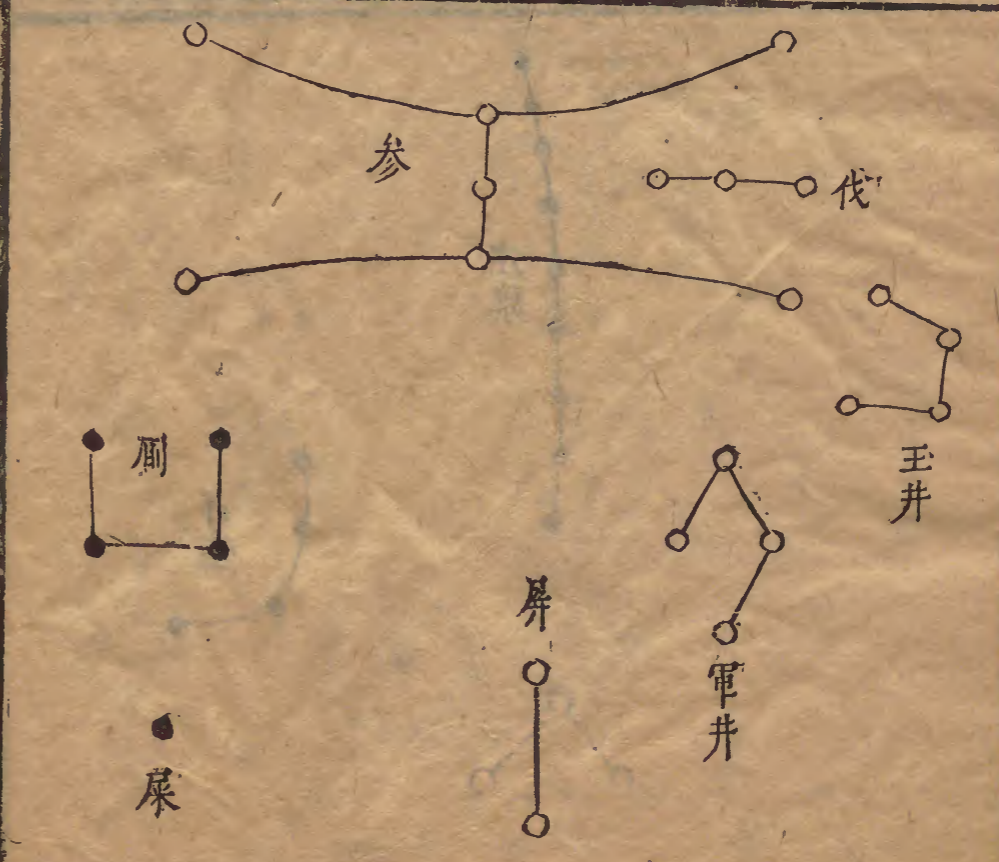 参
伐
玉井
厠
屏
軍井
屎